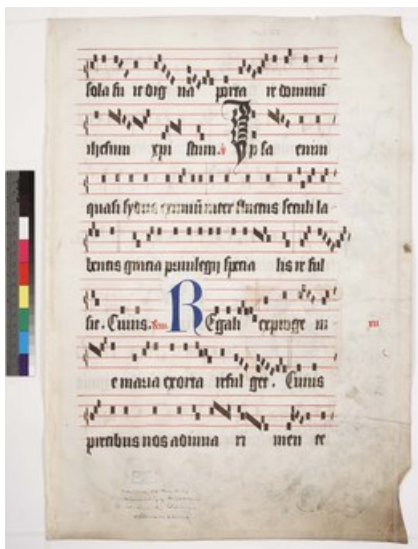 sola fu it dig na porta re dominū
ihesum xpi stum. v Ip sa enim
quasi sydus eximiū inter fluctus seculi la
bentis gracia privilegij specia lis re ful
sit. Cuius. R Egali exproge ni
e maria exorta reful get. Cuius
precibus nos adiuua ri men te